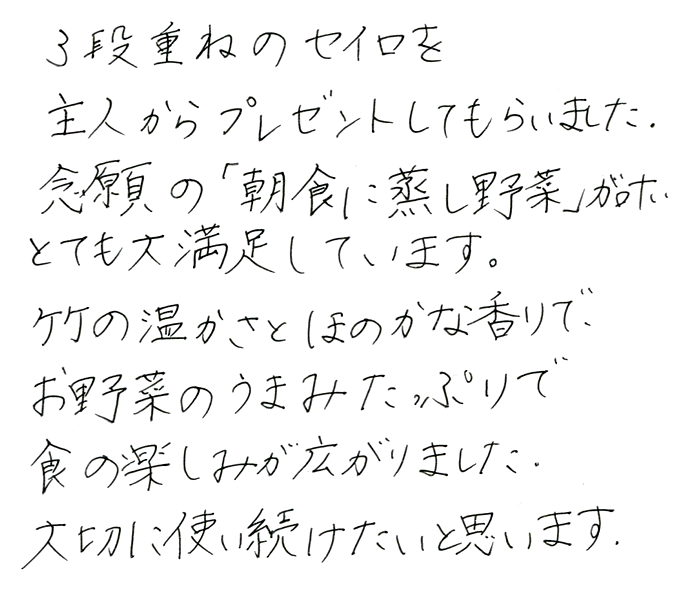 3段重ねのセイロを
主人からプレゼントしてもらいました.
念願の「朝食に蒸し野菜」が
とても大満足しています。
竹の温かさとほのかな香りで、
お野菜のうまみたっぷりで
食の楽しみが広がりました.
大切に使い続けたいと思います.